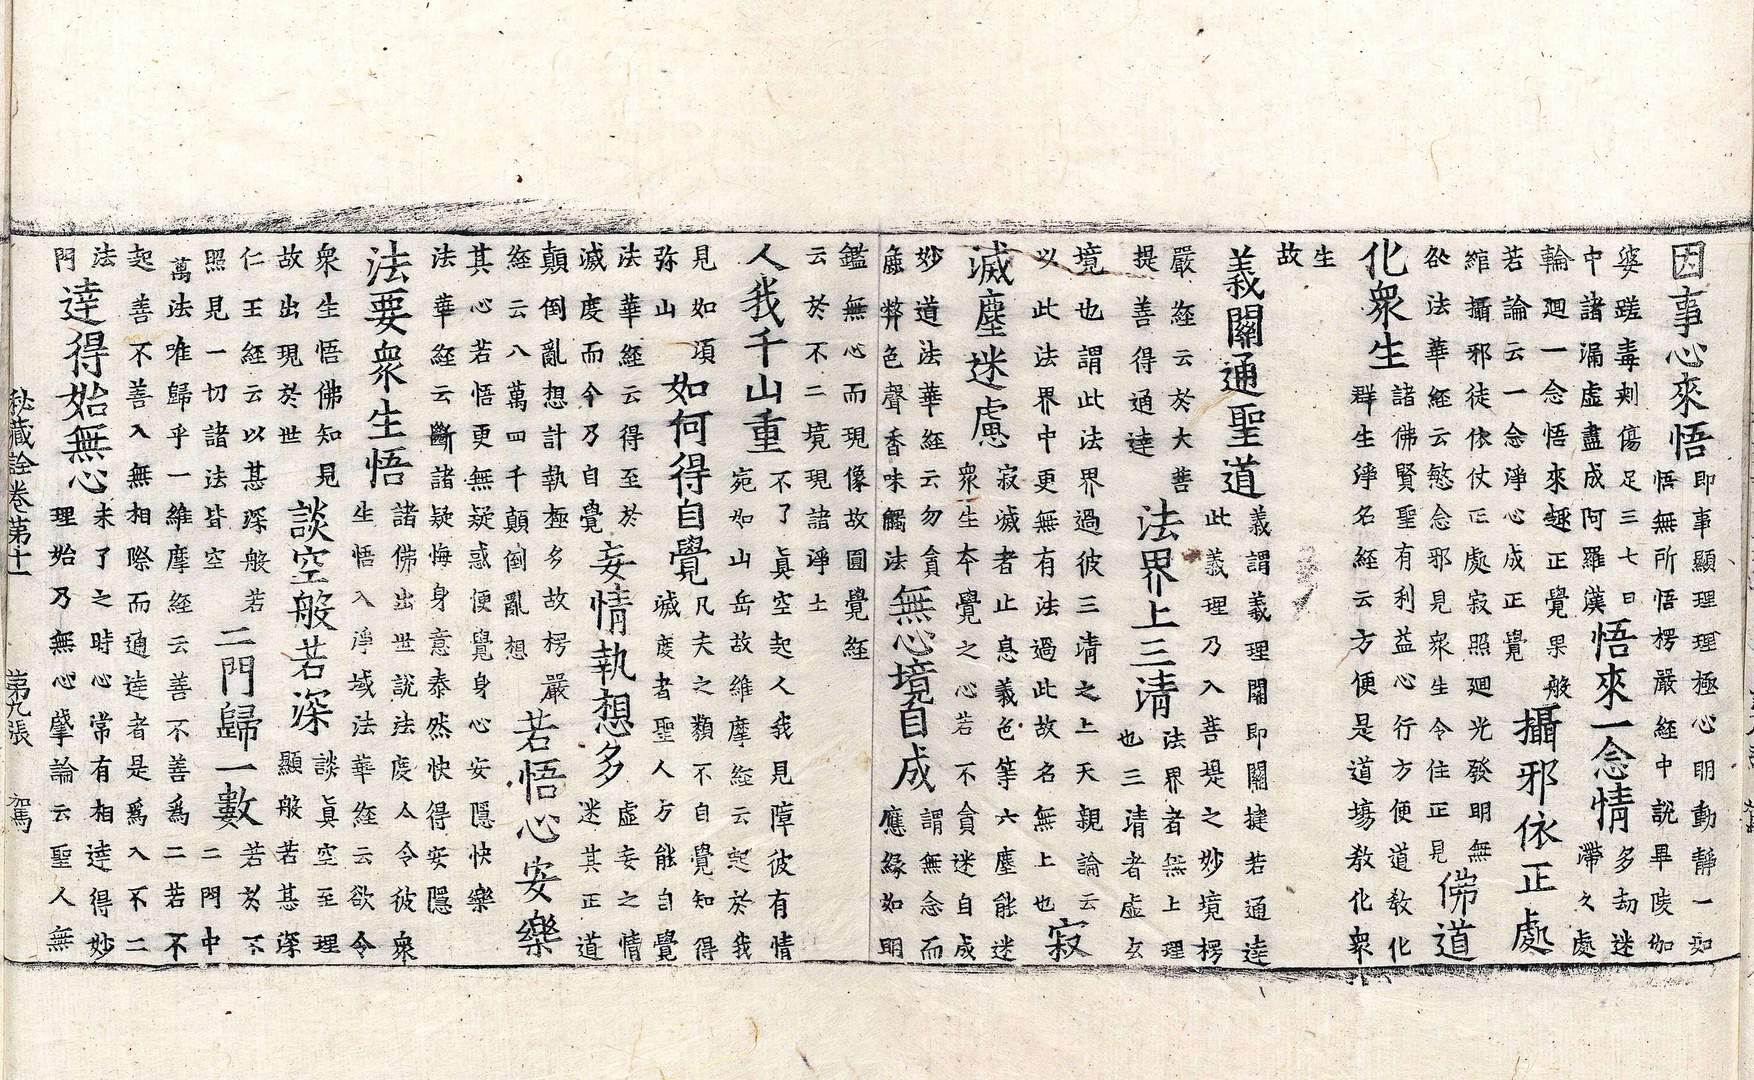 因事心來悟
即事顯理理極心明動靜一如
悟無所悟楞嚴經中說畢陵伽
婆蹉毒刺傷足三七日
中諸漏虛盡成阿羅漢
悟來一念情
多劫迷
滯久處
輪迴一念悟來趣正覺果般
若論云一念淨心成正覺
攝邪依正處
綰攝邪徒依仗正處寂照迴光發明無
欲法華經云愍念邪見衆生令住正見
佛道
化衆生
諸佛賢聖有利益心行方便道教化
群生淨名經云方便是道場教化衆
生
故
義關通聖道
義謂義理關即關揵若通達
此義理乃入菩提之妙境楞
嚴經云於大菩
提善得通達
法界上三清
法界者無上理
也三清者虛玄
境也謂此法界過彼三清之上天親論云
以此法界中更無有法過此故名無上也
寂
滅塵迷慮
寂滅者止息義色等六塵能迷
衆生本覺之心若不貪迷自成
妙道法華經云勿貪
麁弊色聲香味觸法
無心境自成
謂無念而
應緣如明
鑑無心而現像故圓覺經
云於不二境現諸淨土
人我千山重
不了眞空起人我見障彼有情
宛如山岳故維摩經云起於我
見如須
弥山
如何得自覺
凡夫之類不自覺知得
滅度者聖人方能自覺
法華經云得至於
滅度而今乃自覺
妄情執想多
虛妄之情
迷其正道
顛倒亂想計執極多故楞嚴
經云八萬四千顛倒亂想
若悟心安樂
其心若悟更無疑惑便覺身心安隱快樂
法華經云斷諸疑悔身意泰然快得安隱
法要衆生悟
諸佛出世說法度人令彼衆
生悟入淨域法華經云欲令
衆生悟佛知見
故出現於世
談空般若深
談眞空至理
顯般若甚深
仁王經云以甚深般若
照見一切諸法皆空
二門歸一數
若於不
二門中
萬法唯歸乎一維摩經云善不善爲二若不
起善不善入無相際而通達者是爲入不二
法
門
達得始無心
未了之時心常有相達得妙
理始乃無心肇論云聖人無
秘藏詮卷第十一　第九張　駕